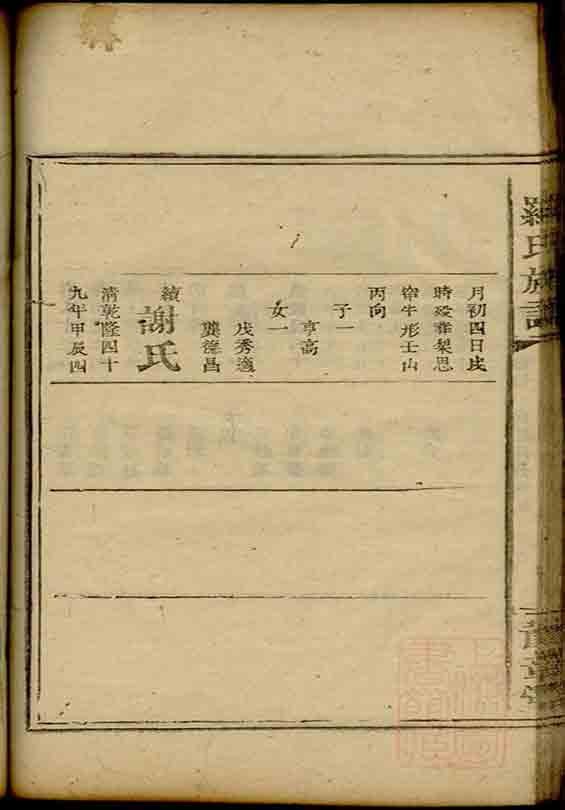 羅氏族譜
月初四日戌
時歿葬梨思
窜牛形壬山
丙向
子一
亨高
女一
戊秀適
龔德昌
續謝氏
清乾隆四十
九年甲辰四